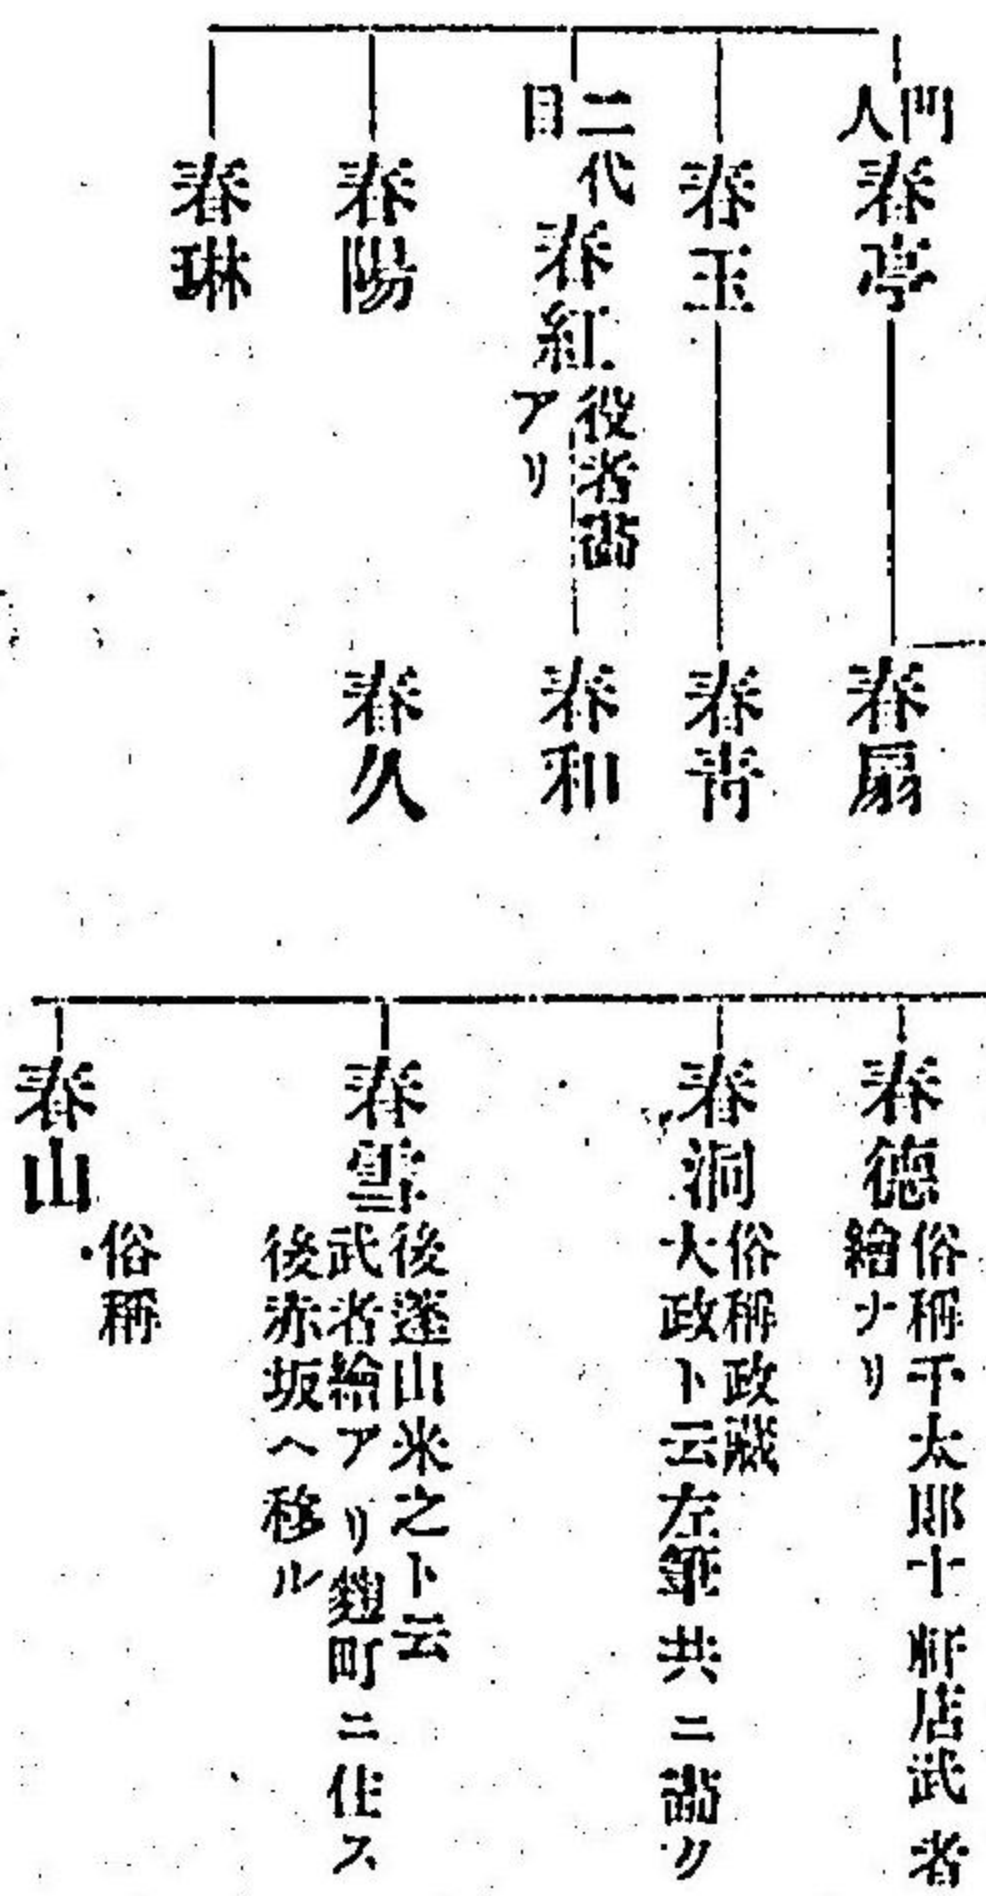 門人
春亭
春扇
春玉
春青
二代目
春紅
役者畵アリ
春和
春陽
春久
春琳
春徳
俗稱千太郎十軒店武者
繪ナリ
春洞
俗稱政藏
大政ト云左筆共ニ畵ク
春雪
後蓬山米之ト云
武者繪アリ麹町ニ住ス
後赤坂ヘ移ル
春山
俗稱